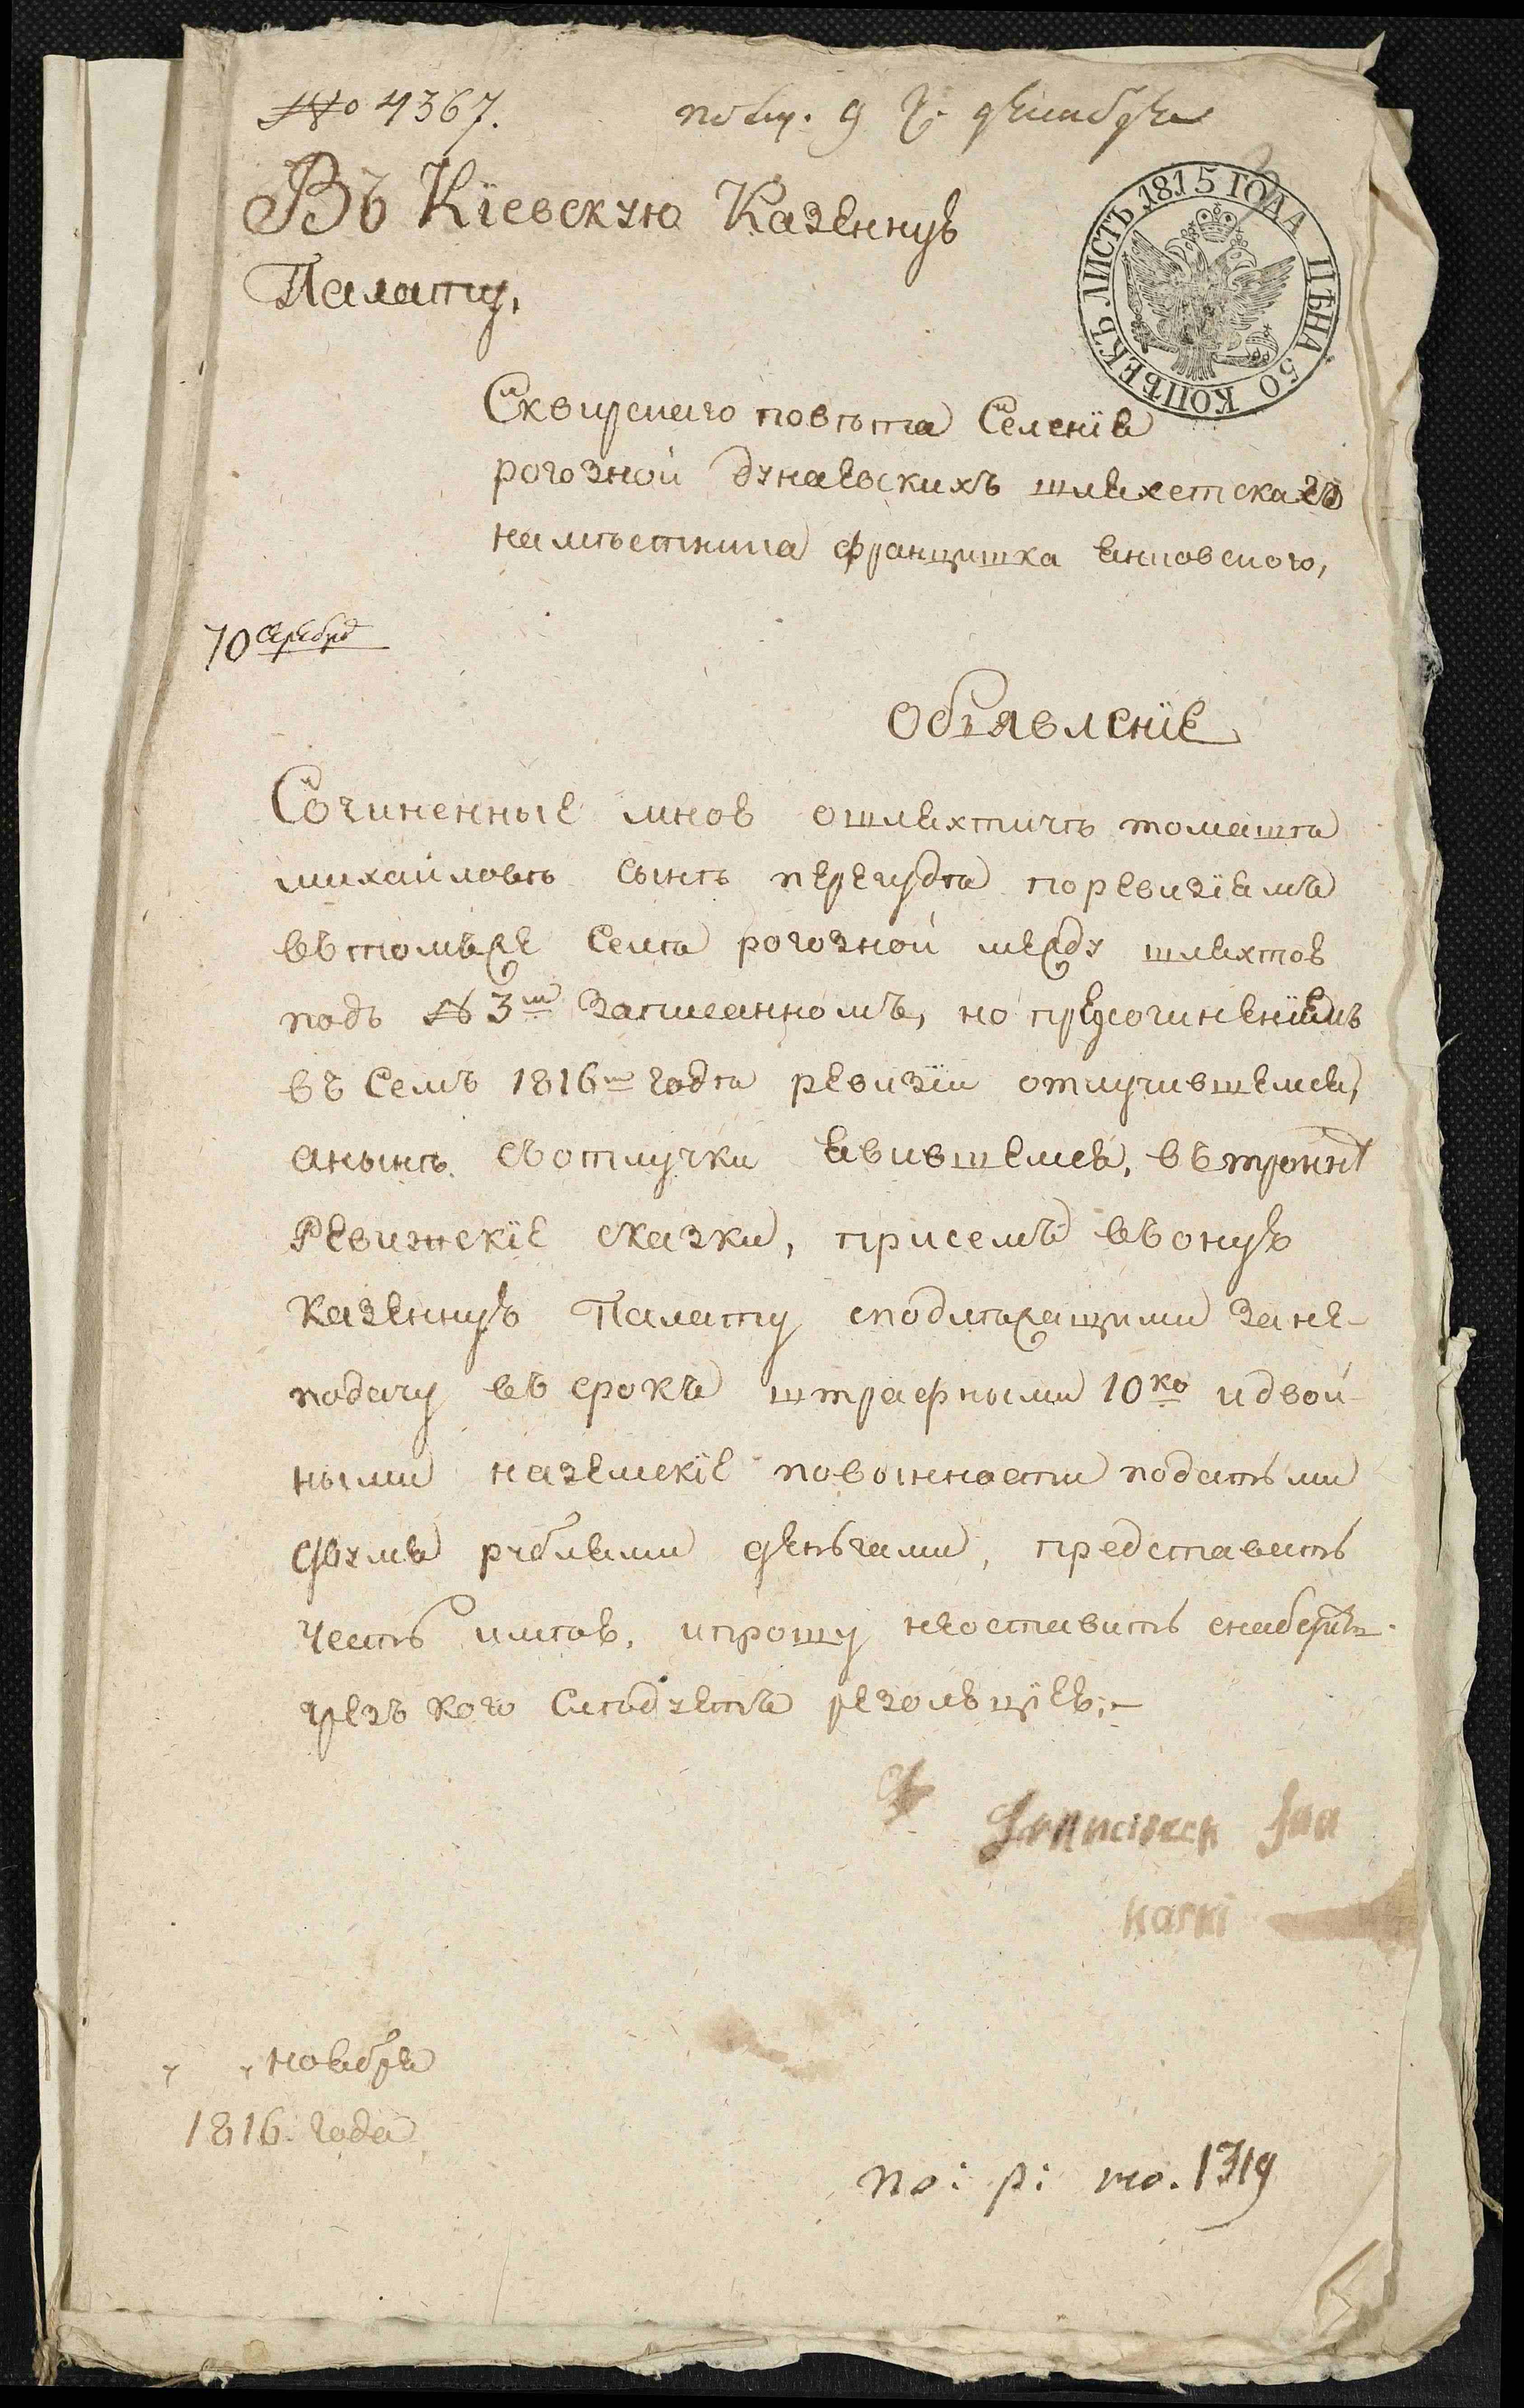 № 4367.
полу. 9 д. декабря
Въ Кїевскую Казенную
Палату,
ЛИСТЪ 1815 ГОДА ЦѢНА 50 КОПѢЕКЪ
Сквирскаго повѣта Селенїя
рогозной дунаевскихъ шляхетскаго
намѣстника францишка янковского,
10 серебро
Объявленїе
Сочиненные мною ошляхтичѣ томашѣ
михайловѣ сынѣ перегудѣ поревизїямъ
втомъже селѣ рогозной между шляхтою
подъ № 3м записанномъ, но
въ семъ 1816м годѣ ревизїи отлучившемся,
анынѣ съотлучки явившемся, въ
Ревижскїе сказки, присемъ въоную
казенную Палату сподлежащими зане-
подачу въ срокъ штрафными 10ко идвой-
ными наземскїе повынности податьми
двумя рублями деньгами, представить
честь имѣю, ипрошу неоставить
чрезъ кого слѣдуетъ резольцїею;-
Franciszek Jan
karki
" " ноября
1816. года
по: р: но. 1319